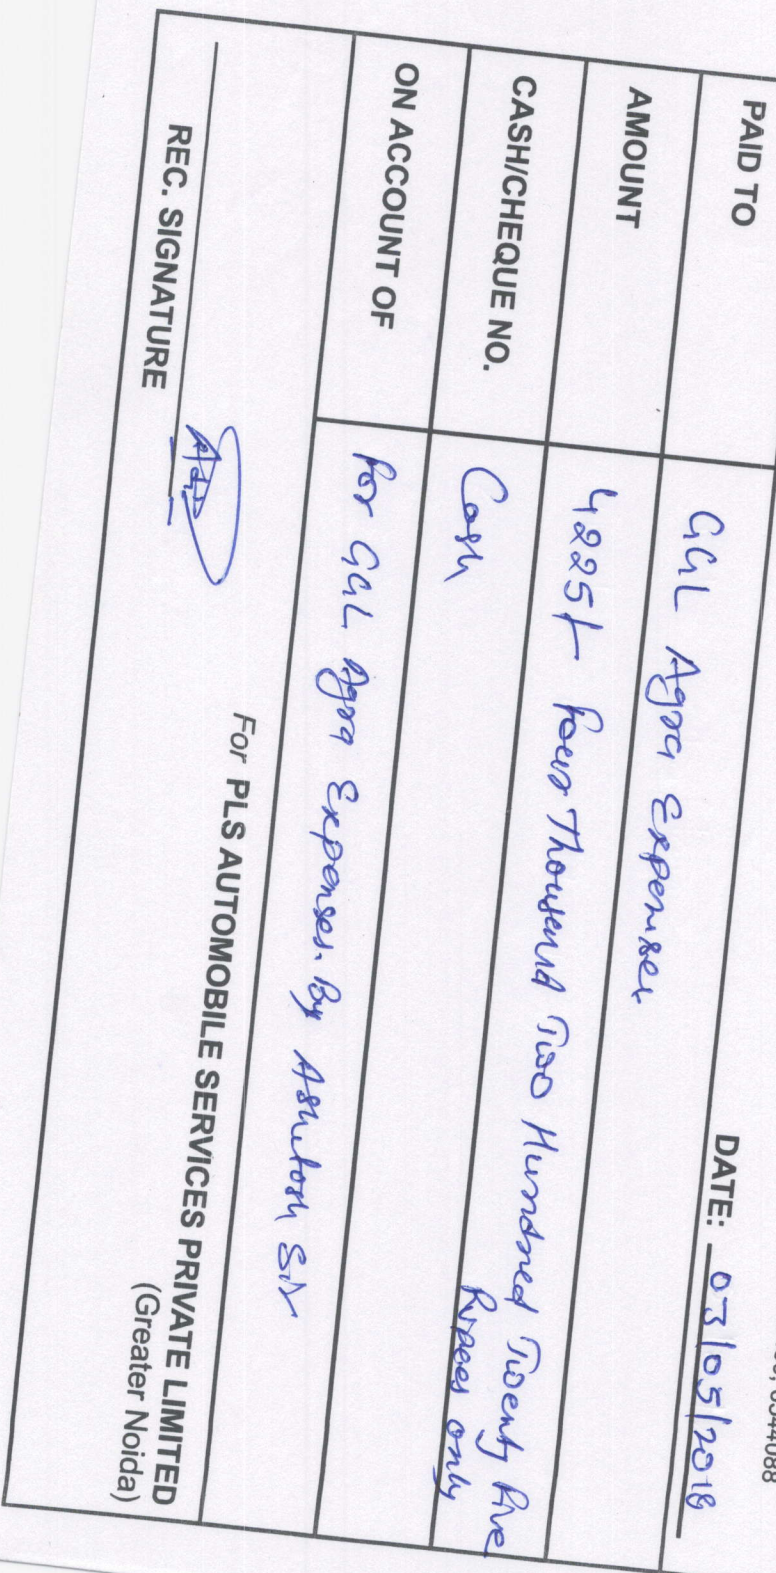 0544088
DATE: 03/05/2018
PAID TO GGL Agra Expenses
AMOUNT 4225/- Four Thousand Two Hundred Twenty Five
Rupees only
CASH/CHEQUE NO. Cash
ON ACCOUNT OF For GGL Agra Expenses. By Ashutosh Sir
For PLS AUTOMOBILE SERVICES PRIVATE LIMITED
(Greater Noida)
REC. SIGNATURE